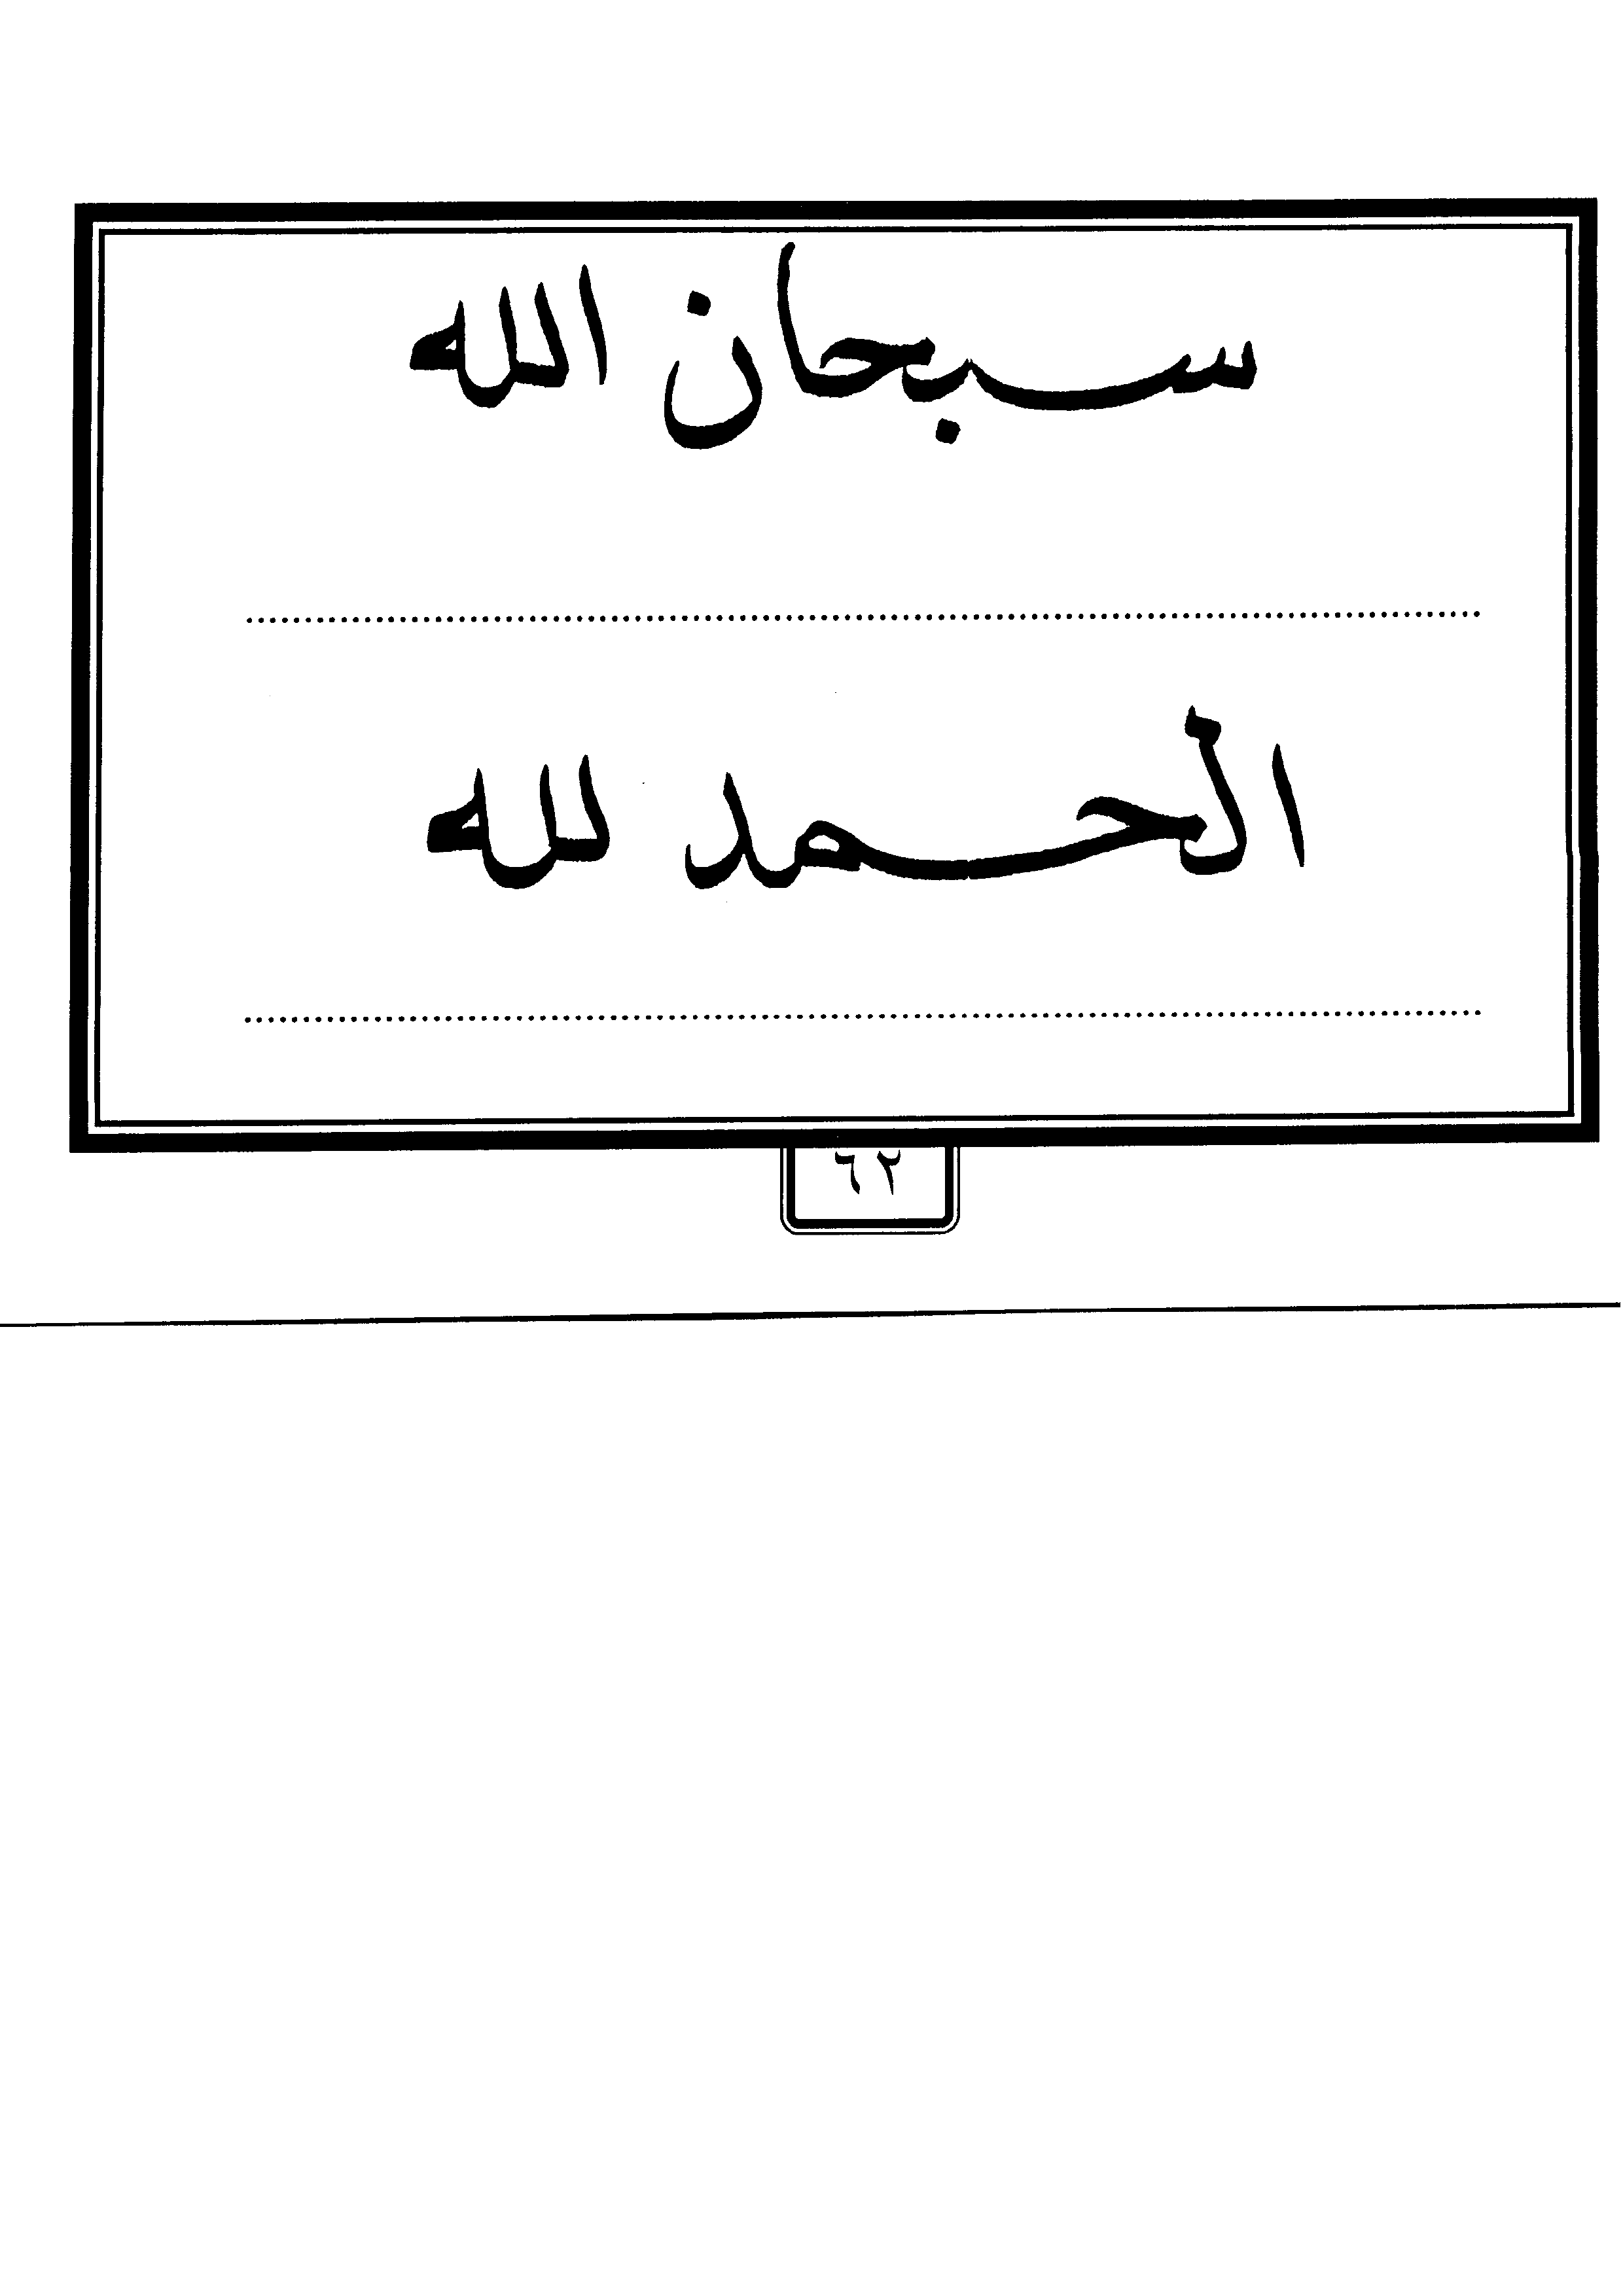 سبحان الله
الحمد لله
٦٢